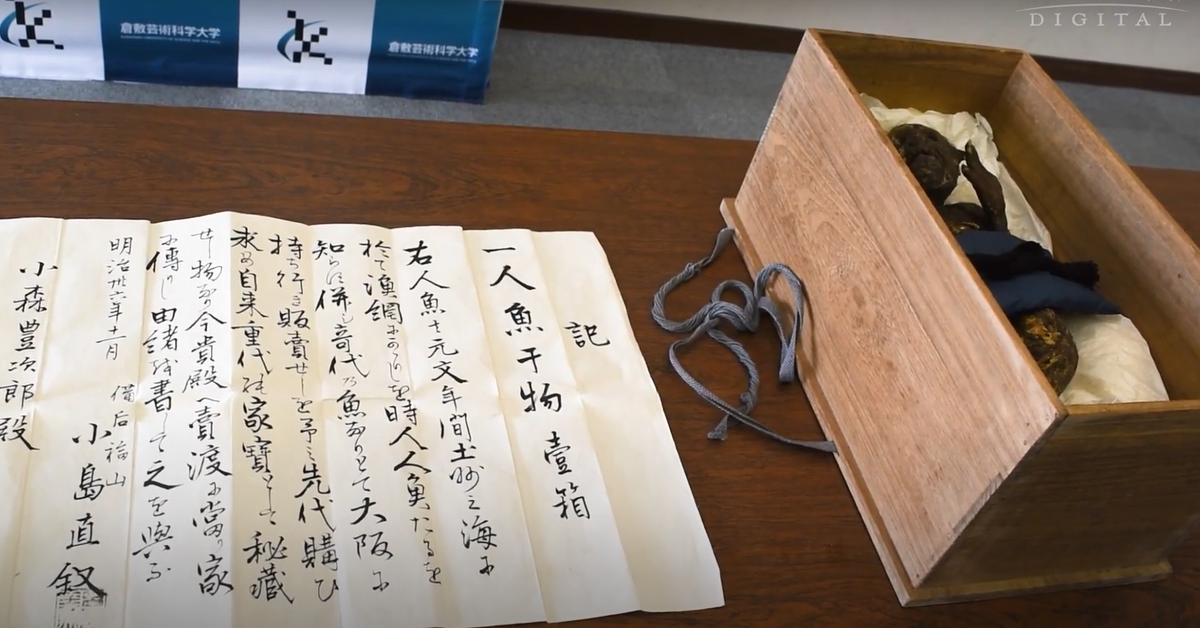 DIGITAL
倉敷芸術科学大学
倉敷芸術科学大学
記
一人魚干物 壹箱
右人魚ハ元文年間土州之海に
於て漁網にかゝりしを時人人魚たるを
知らに併も奇代乃魚なりとて大阪に
持ち行き販賣せしを予之先代購ひ
求め自来重代の家寶として秘藏
せ物なり今貴殿へ賣渡に當り家
に傳りし由緒を書して之を與ふ
明治卅六年十一月 備后福山
小島直
小森豊次郎殿